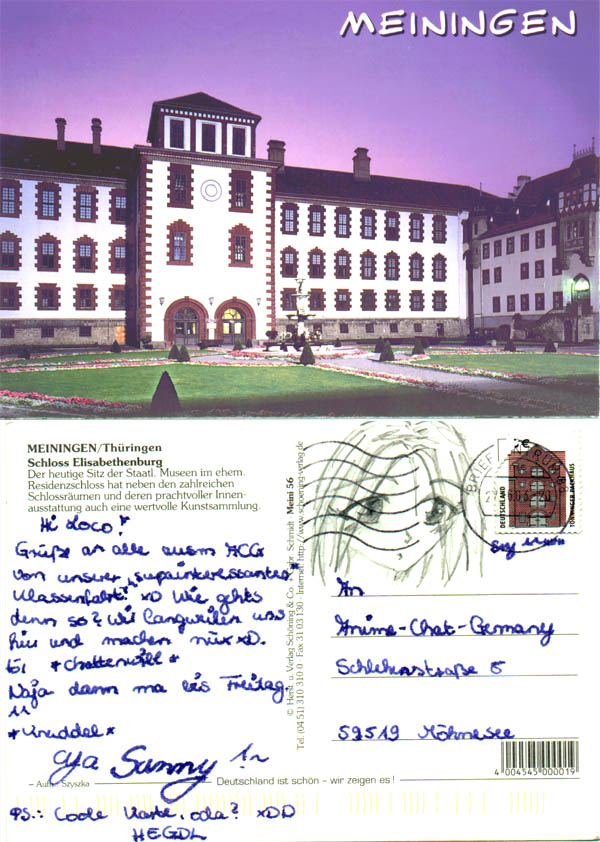 MEININGEN
MEININGEN/Thüringen
Schloss Elisabethenburg
Der heutige Sitz der Staatl. Museen im ehem.
Residenzschloss hat neben den zahlreichen
Schlossräumen und deren prachtvoller Innen-
ausstattung auch eine wertvolle Kunstsammlung.
Hi Loco!
Grüße an alle ausm ACG
von unserer "supainteressanten"
Klassenfahrt! xD Wie gehts
denn so? Wir langweilen uns
hier und machen nüx xD.
*chatten will*
Naja dann ma bis Freitag.
*knuddel*
cya Sunny !~
– Aufn.: Szyszka
PS.: Coole Karte, oda? xDD
HEGDL
© Herst. u. Verlag Schöning & Co. + Gebr. Schmidt Meini 56
Tel. (04 51) 310 310 0 · Fax 31 03 130 · Internet: http://www.schoening-verlag.de
Deutschland ist schön – wir zeigen es!
BRIEFZENTRUM
DEUTSCHLAND
An
Anime-Chat-Germany
Schlehenstraße 8
59519 Möhnesee
4 004545 000019